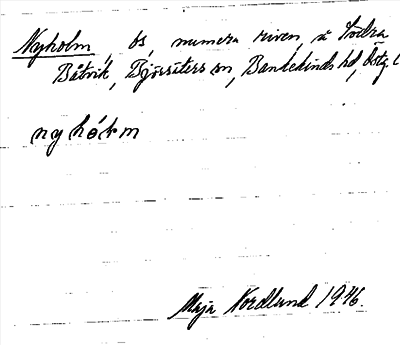 Nyholm, bs, numera riven, å Södra
Båtvik, Björsäters sn, Bankekinds hd, Östg. l
nyhókm
Maja Nordlund 1946.